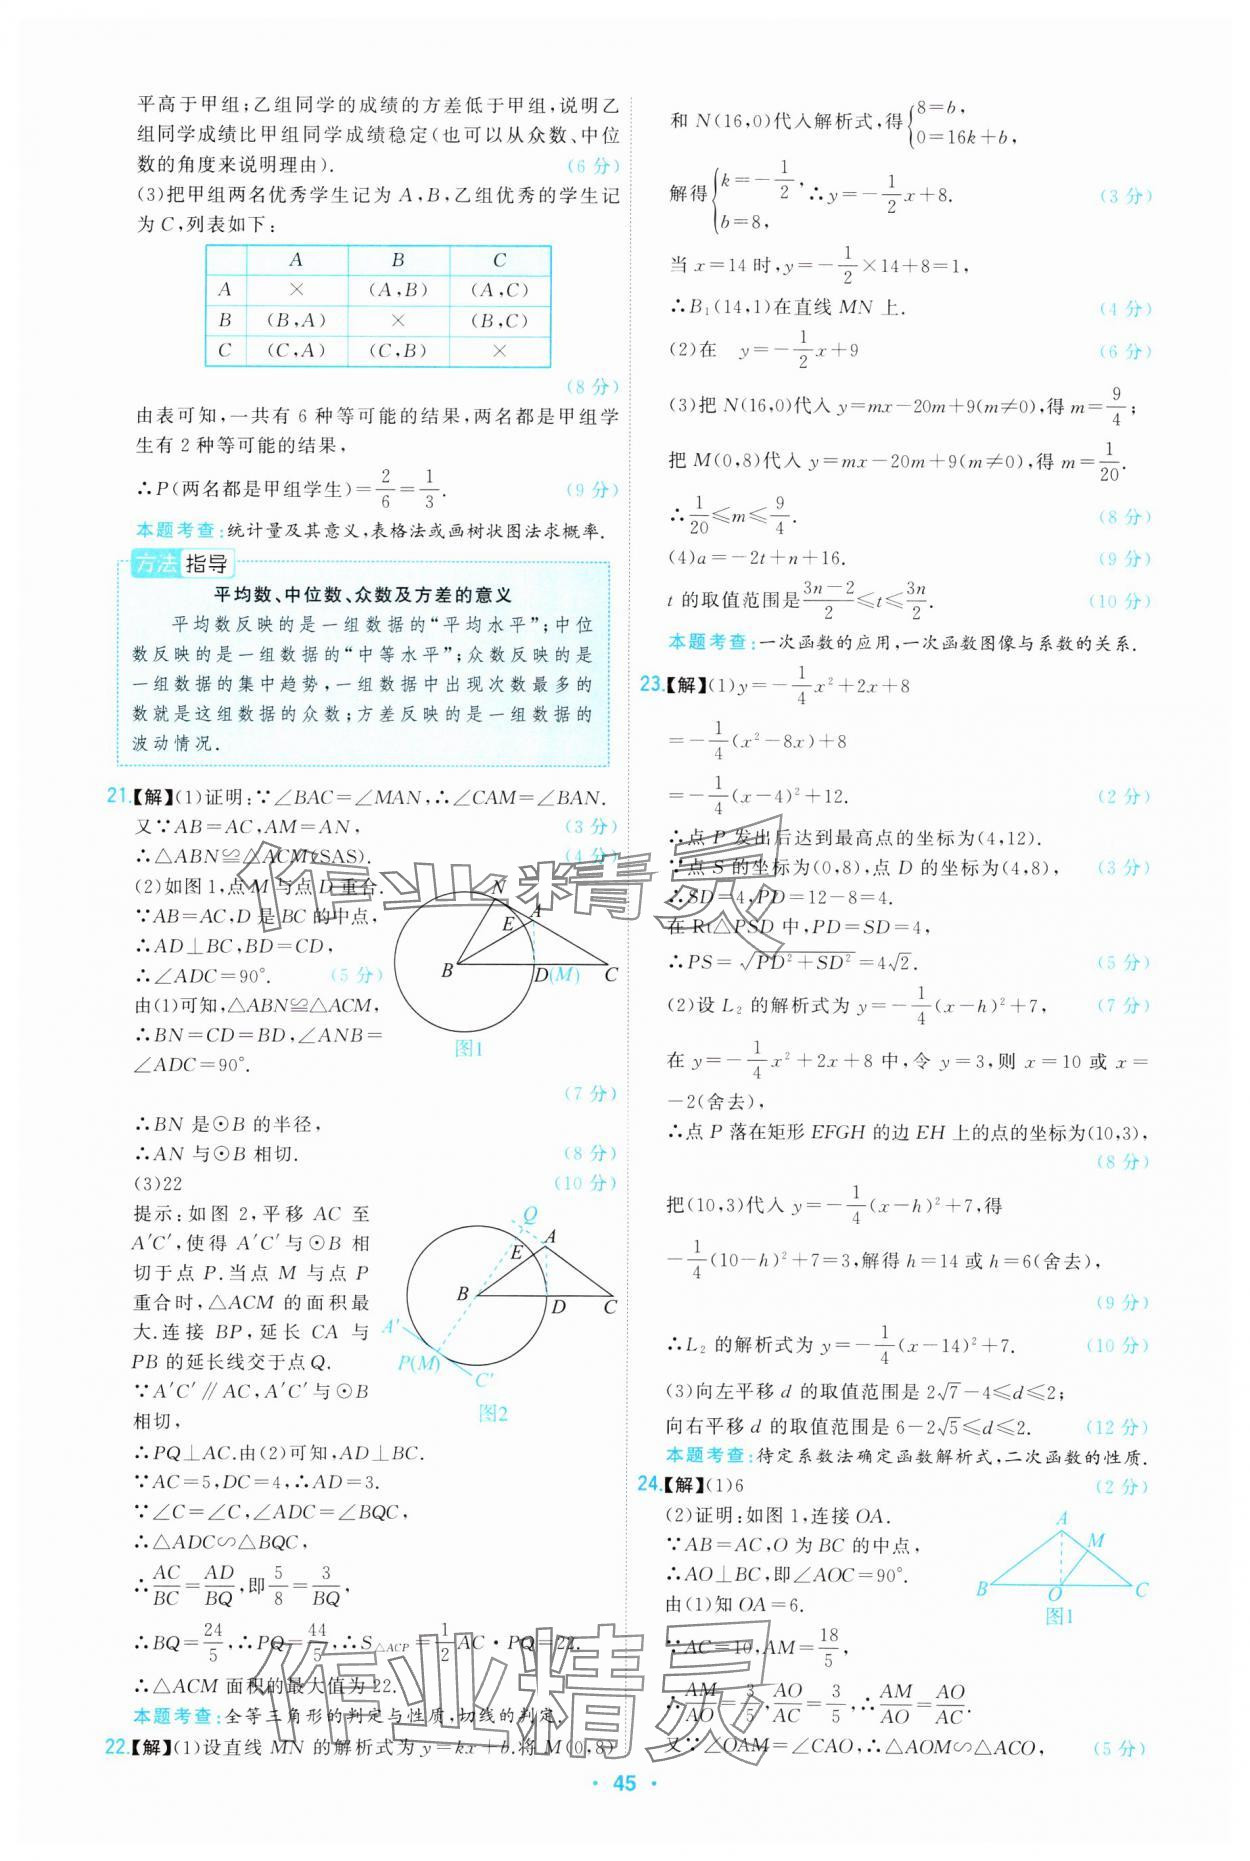 平高于甲组;乙组同学的成绩的方差低于甲组,说明乙
组同学成绩比甲组同学成绩稳定(也可以从众数、中位
数的角度来说明理由). (6 分)
(3)把甲组两名优秀学生记为 A,B,乙组优秀的学生记
为 C,列表如下:
A B C
A × (A,B) (A,C)
B (B,A) × (B,C)
C (C,A) (C,B) ×
(8 分)
由表可知,一共有 6 种等可能的结果,两名都是甲组学
生有 2 种等可能的结果,
∴P(两名都是甲组学生)=2/6=1/3. (9 分)
本题考查:统计量及其意义,表格法或画树状图法求概率.
方法指导
平均数、中位数、众数及方差的意义
平均数反映的是一组数据的“平均水平”;中位
数反映的是一组数据的“中等水平”;众数反映的是
一组数据的集中趋势,一组数据中出现次数最多的
数就是这组数据的众数;方差反映的是一组数据的
波动情况.
21.【解】(1)证明:∵∠BAC=∠MAN,∴∠CAM=∠BAN.
又∵AB=AC,AM=AN, (3 分)
∴△ABN≌△ACM(SAS). (4 分)
(2)如图 1,点 M 与点 D 重合.
∵AB=AC,D 是 BC 的中点,
∴AD⊥BC,BD=CD,
∴∠ADC=90°. (5 分)
由(1)可知,△ABN≌△ACM,
∴BN=CD=BD,∠ANB=
∠ADC=90°.
(7 分)
N A E B D(M) C
图1
∴BN 是⊙B 的半径,
∴AN 与⊙B 相切. (8 分)
(3)22 (10 分)
提示:如图 2,平移 AC 至
A′C′,使得 A′C′与⊙B 相
切于点 P.当点 M 与点 P
重合时,△ACM 的面积最
大.连接 BP,延长 CA 与
PB 的延长线交于点 Q.
∵A′C′∥AC,A′C′与⊙B
相切,
Q A E B D C A′ P(M) C′
图2
∴PQ⊥AC.由(2)可知,AD⊥BC.
∵AC=5,DC=4,∴AD=3.
∵∠C=∠C,∠ADC=∠BQC,
∴△ADC∽△BQC,
∴AC/BC=AD/BQ,即5/8=3/BQ,
∴BQ=24/5,∴PQ=44/5,∴S△ACP=1/2AC·PQ=22.
∴△ACM 面积的最大值为 22.
本题考查:全等三角形的判定与性质,切线的判定.
22.【解】(1)设直线 MN 的解析式为 y=kx+b.将 M(0,8)
和 N(16,0)代入解析式,得{8=b,
0=16k+b,
解得{k=-1/2, b=8, ∴y=-1/2x+8. (3 分)
当 x=14 时,y=-1/2×14+8=1,
∴B₁(14,1)在直线 MN 上. (4 分)
(2)在 y=-1/2x+9 (6 分)
(3)把 N(16,0)代入 y=mx-20m+9(m≠0),得 m=9/4;
把 M(0,8)代入 y=mx-20m+9(m≠0),得 m=1/20.
∴1/20≤m≤9/4. (8 分)
(4)a=-2t+n+16. (9 分)
t 的取值范围是(3n-2)/2≤t≤3n/2. (10 分)
本题考查:一次函数的应用,一次函数图像与系数的关系.
23.【解】(1)y=-1/4x²+2x+8
=-1/4(x²-8x)+8
=-1/4(x-4)²+12. (2 分)
∴点 P 发出后达到最高点的坐标为(4,12).
∵点 S 的坐标为(0,8),点 D 的坐标为(4,8), (3 分)
∴SD=4,PD=12-8=4.
在 Rt△PSD 中,PD=SD=4,
∴PS=√(PD²+SD²)=4√2. (5 分)
(2)设 L₂ 的解析式为 y=-1/4(x-h)²+7, (7 分)
在 y=-1/4x²+2x+8 中,令 y=3,则 x=10 或 x=
-2(舍去),
∴点 P 落在矩形 EFGH 的边 EH 上的点的坐标为(10,3),
(8 分)
把(10,3)代入 y=-1/4(x-h)²+7,得
-1/4(10-h)²+7=3,解得 h=14 或 h=6(舍去),
(9 分)
∴L₂ 的解析式为 y=-1/4(x-14)²+7. (10 分)
(3)向左平移 d 的取值范围是 2√7-4≤d≤2;
向右平移 d 的取值范围是 6-2√5≤d≤2. (12 分)
本题考查:待定系数法确定函数解析式,二次函数的性质.
24.【解】(1)6 (2 分)
(2)证明:如图 1,连接 OA.
∵AB=AC,O 为 BC 的中点,
∴AO⊥BC,即∠AOC=90°.
由(1)知 OA=6.
A M B O C
图1
∵AC=10,AM=18/5,
∴AM/AO=3/5,AO/AC=3/5,∴AM/AO=AO/AC.
又∵∠OAM=∠CAO,∴△AOM∽△ACO, (5 分)
作业精灵
作业精灵
· 45 ·